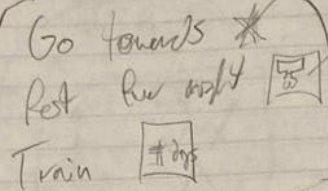 Go towards
Rest for night
Train # days